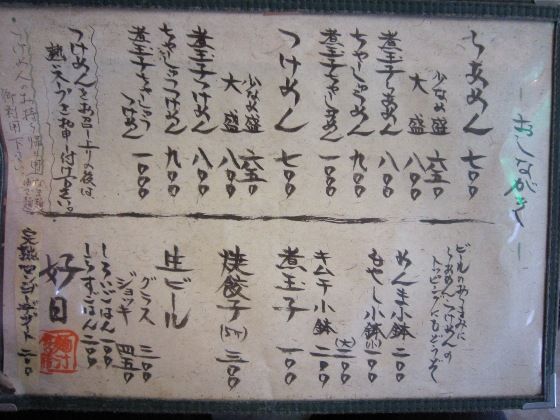 ーおしながきー
らあめん 七〇〇
少なめ盛 六五〇
大盛 八〇〇
煮玉子らあめん 八〇〇
ちゃーしゅーめん 九〇〇
煮玉子ちゃーしゅーめん 一〇〇〇
つけめん 七〇〇
少なめ盛 六五〇
大盛 八〇〇
煮玉子つけめん 八〇〇
ちゃーしゅーつけめん 九〇〇
煮玉子ちゃーしゅーつけめん 一〇〇〇
つけめんをお召し上りの後は
熱いスープをお申し付け下さい。
つけめんのお持ち帰り
御利用下さい
ビールのおつまみに
らあめん、つけめんの
トッピングにもどうぞ
めんま小鉢 二〇〇
もやし小鉢 (小) 一〇〇
(大) 二〇〇
キムチ小鉢 二〇〇
煮玉子 一〇〇
焼餃子 三〇〇
生ビール
グラス 三〇〇
ジョッキ 四五〇
しろいごはん 一〇〇
しらすごはん 二〇〇
好日